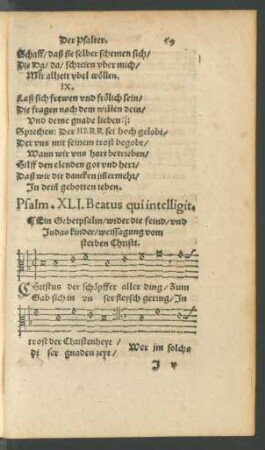 Der Psalter. 69
Schaff/ daß sie selber schemen sich/
Die Da/ da/ schreien vber mich/
Mir alzeit vbel wöllen.
IX.
Laß sich frewen vnd frölich sein/
Die fragen nach dem willen dein/
Vnd deine gnade lieben:
Sprechen: Der HERR sei hoch gelobt/
Der vns mit seinem trost begobt/
Wann wir vns hart betrieben/
Hilff den elenden got vnd herr/
Daß wir dir dancken jmermehr/
In deiñ gebotten leben.
Psalm. XLI. Beatus qui intelligit.
¶ Ein Gebetpsalm/ wider die feind/ vnd
Judas kinder/ weissagung vom
sterben Christi.
CHristus der schöpffer aller ding/ Zum
Gab sich in vnser fleysch gering/ In
trost der Christenheyt/
di ser gnaden zeyt/ Wer jm solchs
J v